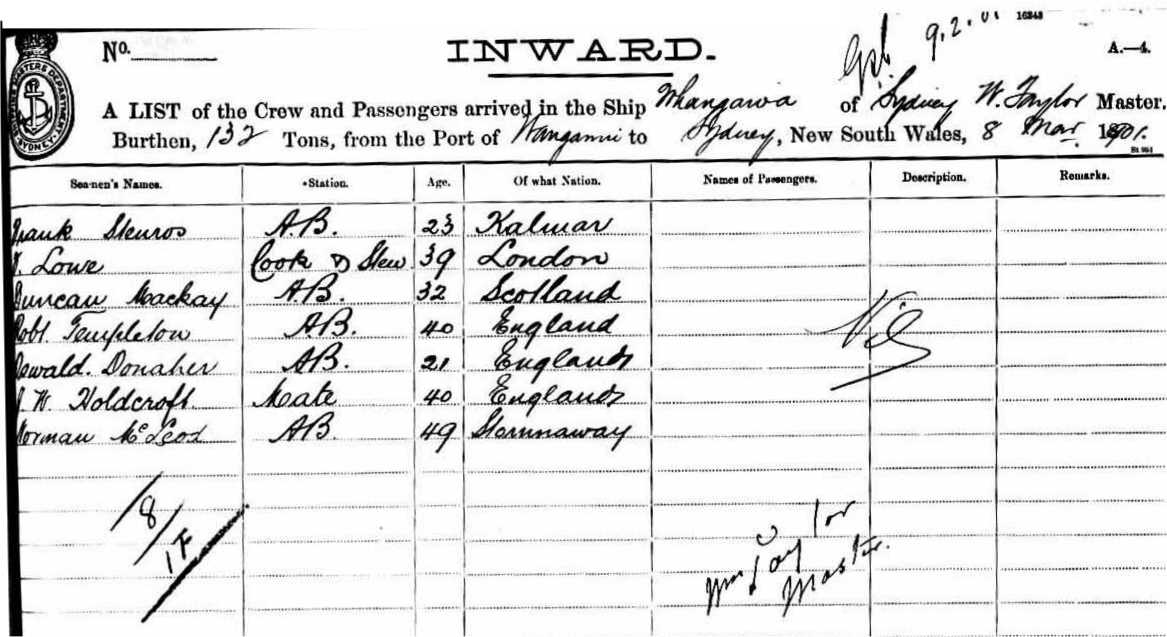 9.2.01 16348
No. INWARD. A.—4.
A LIST of the Crew and Passengers arrived in the Ship Whangaroa of Sydney W. Taylor Master.
Burthen, 132 Tons, from the Port of Wanganui to Sydney, New South Wales, 8 Mar. 1901.
Seamen's Names. *Station. Age. Of what Nation. Names of Passengers. Description. Remarks.
Frank Stenros A.B. 23 Kalmar
Lowe Cook & Stew 39 London
Duncan Mackay A.B. 32 Scotland
Robt. Templeton A.B. 40 England Nil
Oswald. Donaher A.B. 21 England
J. W. Holdcroft Mate 40 England
Norman McLeod A.B. 49 Stornnaway
18/1F
Wm Taylor
Master.